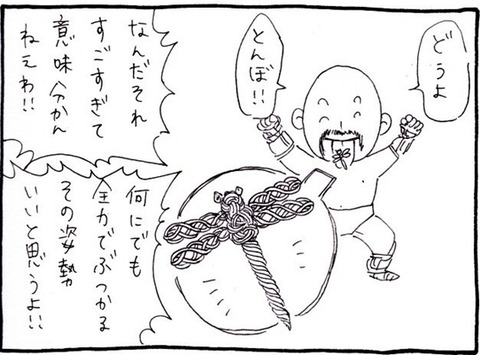 どうよ
とんぼ!!
なんだそれ
すごすぎて
意味分かん
ねえわ!!
何にでも
全力でぶつかる
その姿勢
いいと思うよ!!